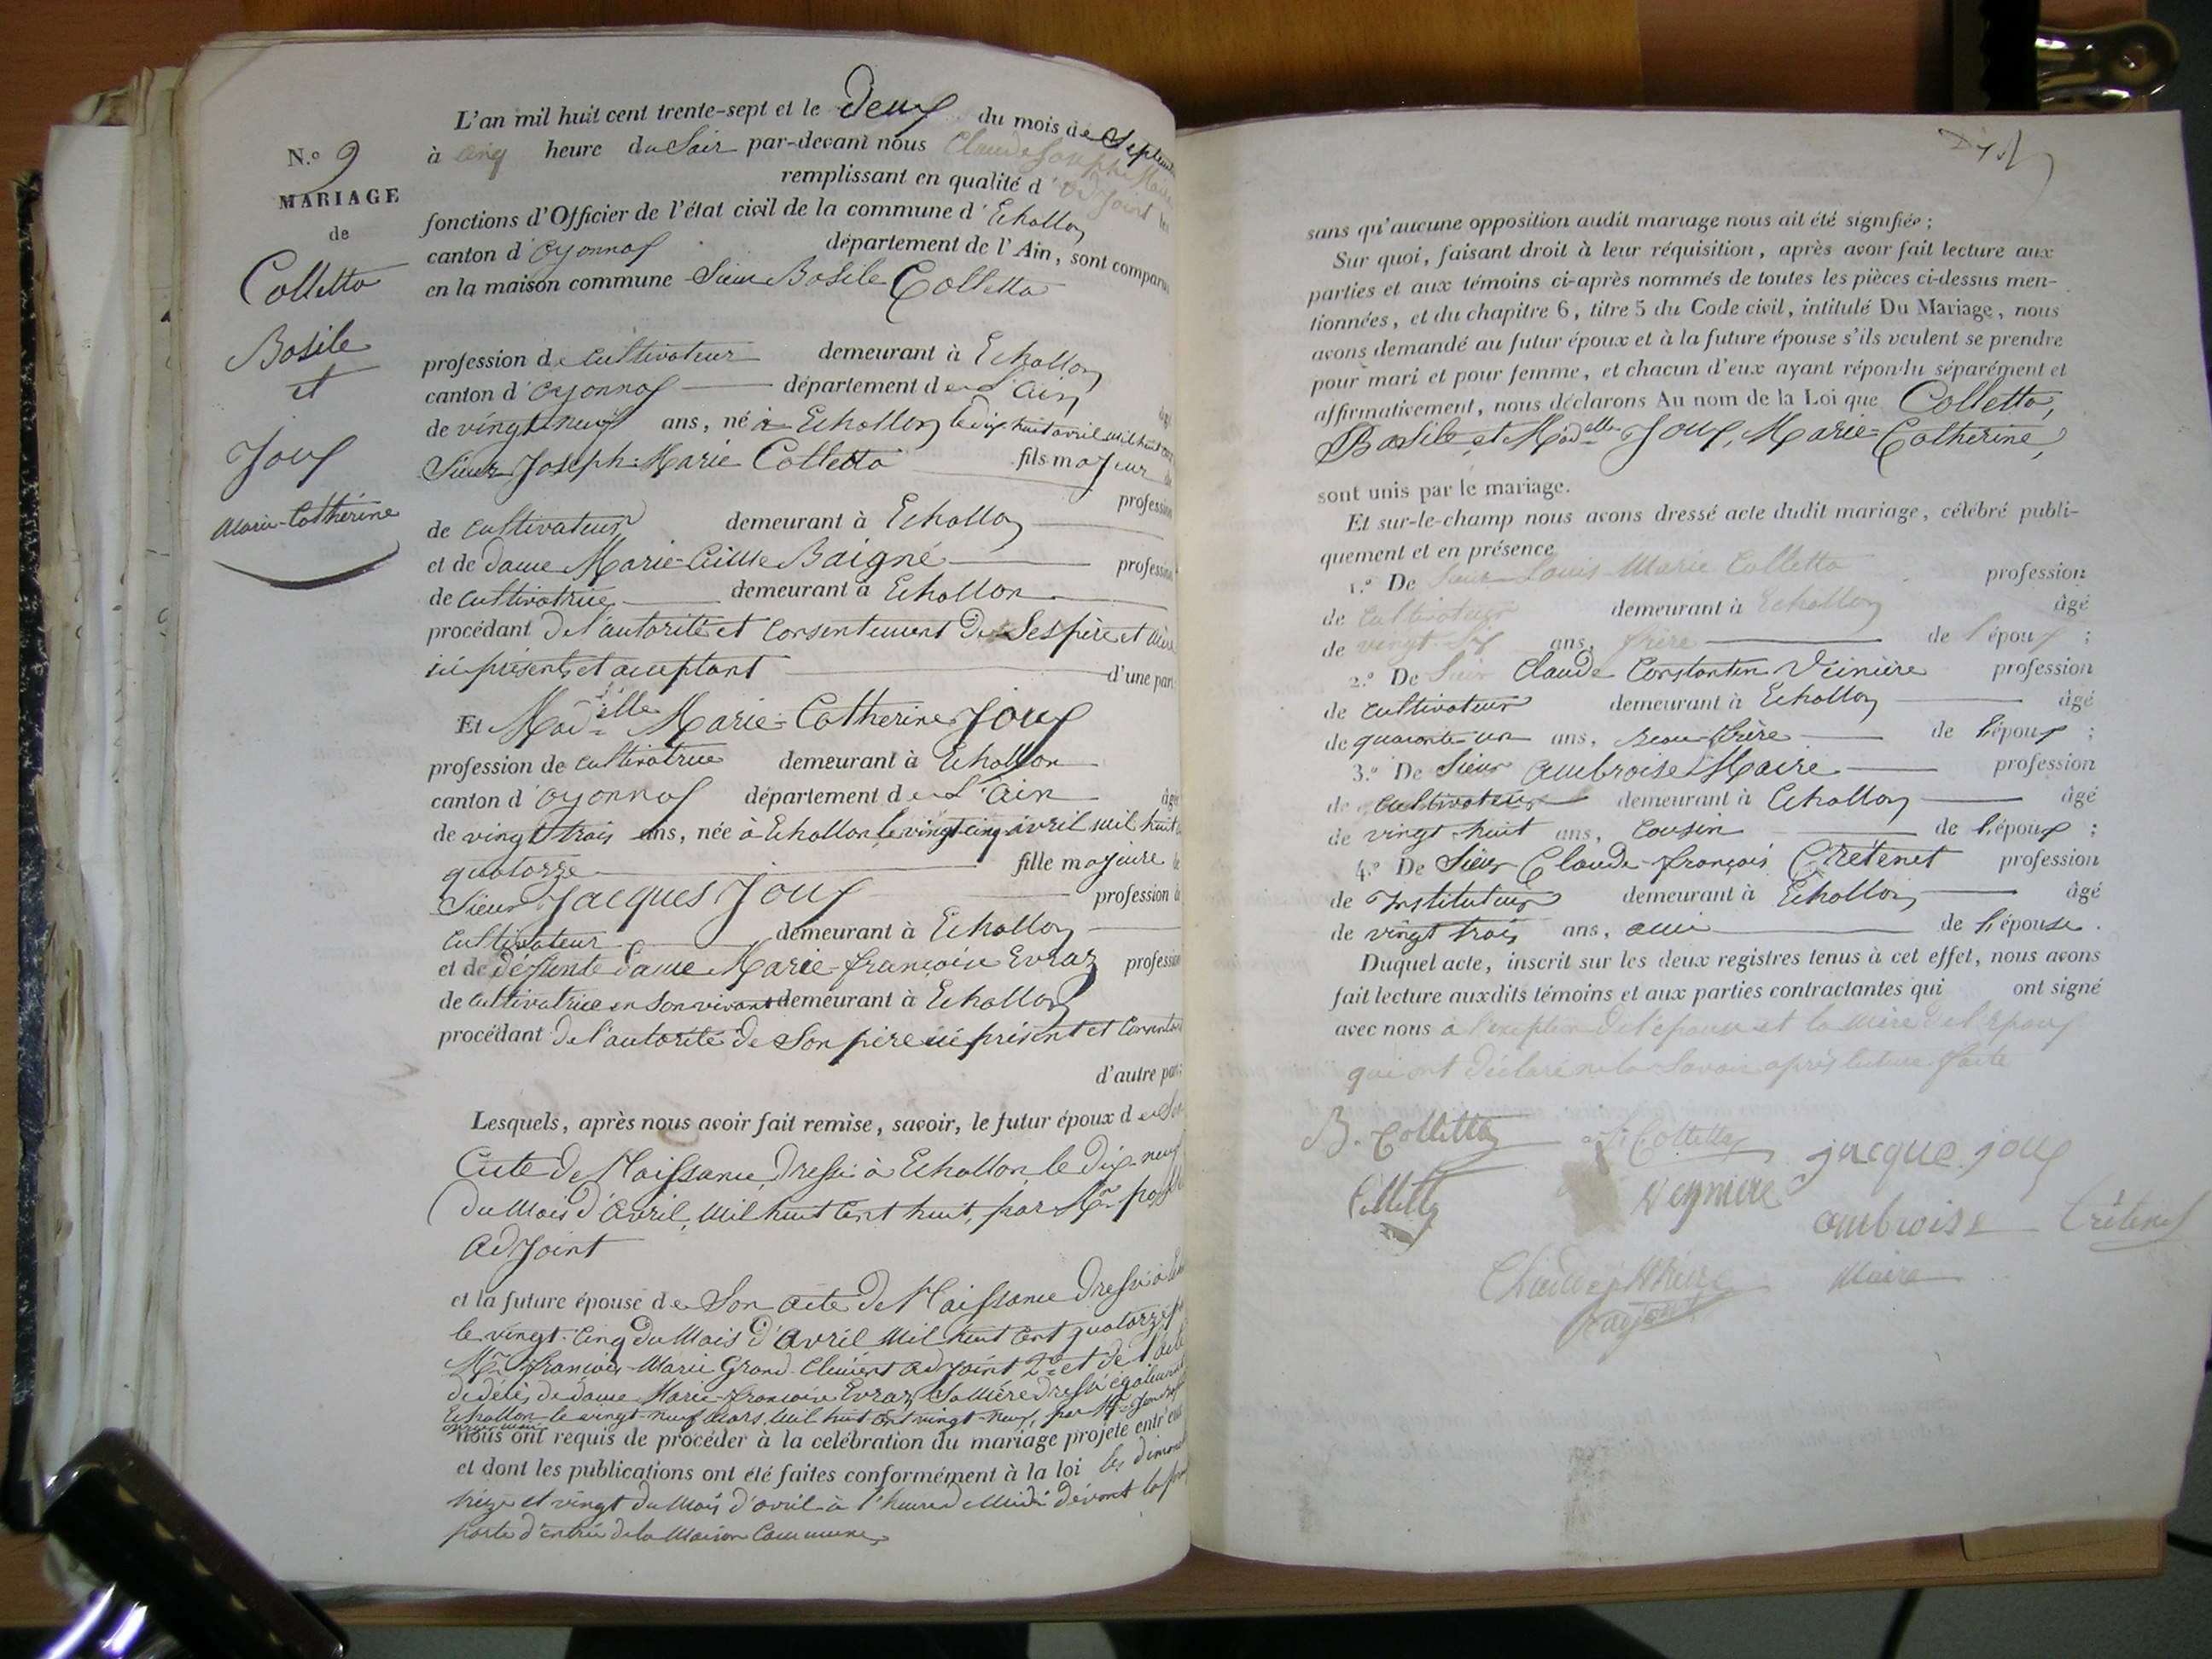 N.º 9
MARIAGE
de
Colletta
Basile
et
Joux
Marie-Catherine
L'an mil huit cent trente-sept et le deux du mois de Septembre
à cinq heure du Soir par-devant nous Claude Joseph Maire
remplissant en qualité d'adjoint les
fonctions d'Officier de l'état civil de la commune d'Echallon
canton d'oyonnax département de l'Ain, sont comparus
en la maison commune Sieur Basile Colletta
profession de cultivateur demeurant à Echallon
canton d'oyonnax département de L'Ain âgé
de vingt neuf ans, né à Echallon le dix huit avril mil huit cent
fils majeur de
Sieur Joseph-Marie Colletta profession
de cultivateur demeurant à Echallon
et de dame Marie- Baigné profession
de cultivatrice demeurant à Echallon
procédant de l'autorité et consentement de Ses père et mère
ici présents et acceptant d'une part
Et Mad.elle Marie-Catherine Joux
profession de cultivatrice demeurant à Echallon
canton d'oyonnax département de L'Ain âgée
de vingt trois ans, née à Echallon le vingt-cinq avril mil huit
quatorze fille majeure de
Sieur Jacques Joux profession de
cultivateur demeurant à Echallon
et de défunte dame Marie-françoise Evraz profession
de cultivatrice en Son vivant demeurant à Echallon
procédant de l'autorité de Son père ici présent et Consentant
d'autre part;
Lesquels, après nous avoir fait remise, savoir, le futur époux de Son
acte de Naissance Dressé à Echallon le dix-neuf
du Mois d'avril, mil huit Cent huit, par Mr
adjoint
et la future épouse de Son acte de Naissance Dressé à
le vingt-cinq du Mois d'avril Mil huit Cent quatorze
Mr françois-Marie Grand-Clément adjoint et de l'acte
de décès de dame Marie-françoise Evraz Sa Mère dressé également
Echallon le vingt-neuf Mars, Mil huit Cent vingt-neuf, par Mr
nous ont requis de procéder à la celébration du mariage projeté entr'eux
et dont les publications ont été faites conformément à la loi les dimanches
treize et vingt du Mois d'avril à l'heure de Midi devant la
porte d'entrée de la Maison Commune
sans qu'aucune opposition audit mariage nous ait été signifiée;
Sur quoi, faisant droit à leur réquisition, après avoir fait lecture aux
parties et aux témoins ci-après nommés de toutes les pièces ci-dessus men-
tionnées, et du chapitre 6, titre 5 du Code civil, intitulé Du Mariage, nous
avons demandé au futur époux et à la future épouse s'ils veulent se prendre
pour mari et pour femme, et chacun d'eux ayant répondu séparément et
affirmativement, nous déclarons Au nom de la Loi que Colletta,
Basile et Mad.elle Joux, Marie-Catherine,
sont unis par le mariage.
Et sur-le-champ nous avons dressé acte dudit mariage, célébré publi-
quement et en présence
1.º De Sieur Louis-Marie Colletta profession
de cultivateur demeurant à Echallon âgé
de vingt-six ans, frère de l'époux;
2.º De Sieur Claude Constantin Veinière profession
de cultivateur demeurant à Echallon âgé
de quarante un ans, Beau-frère de l'époux;
3.º De Sieur Ambroise Maire profession
de cultivateur demeurant à Echallon âgé
de vingt huit ans, Cousin de l'époux;
4.º De Sieur Claude-françois Crétenet profession
de Instituteur demeurant à Echallon âgé
de vingt trois ans, ami de l'épouse.
Duquel acte, inscrit sur les deux registres tenus à cet effet, nous avons
fait lecture auxdits témoins et aux parties contractantes qui ont signé
avec nous à l'exception de l'épouse et la mère de l'époux
qui ont déclaré ne la Savoir après lecture faite
B. Colletta Colletta jacque joux
Colletta Veyniere ambroise Crétenet
Maire
adjoint